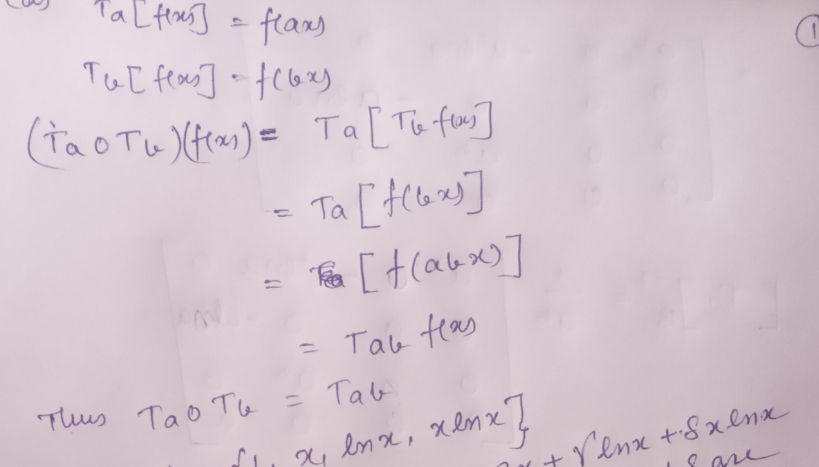 (a) Ta[f(x)] = f(ax)
1
Tb[f(x)] = f(bx)
(Ta o Tb)(f(x)) = Ta[Tb f(x)]
= Ta[f(bx)]
= [f(abx)]
= Tab f(x)
Thus Ta o Tb = Tab
x, lnx, xlnx}
x + γ lnx + δ x lnx
are